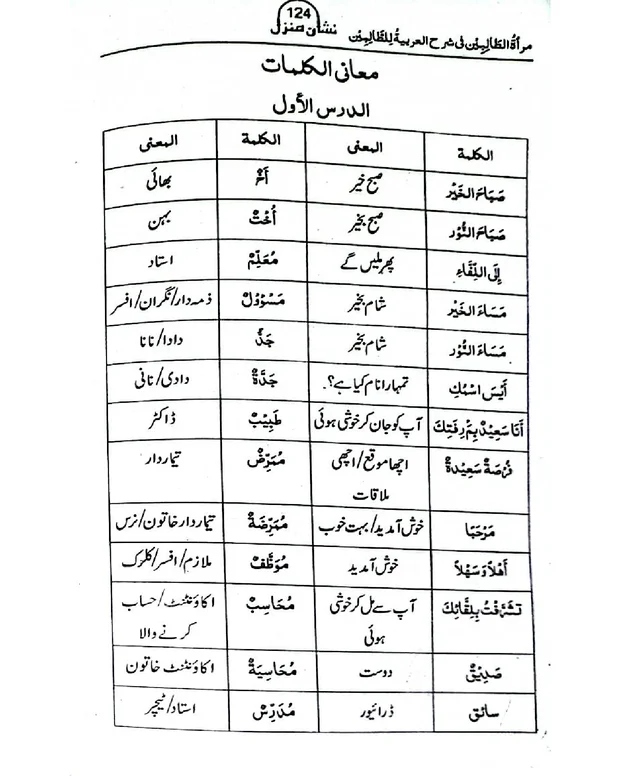 مرأة الطالبين فى شرح العربية للطالبين
نشان منزل
124
معانى الكلمات
الدرس الأول
الكلمة المعنى الكلمة المعنى
صَبَاحَ الخَيْر صبح خیر أَخٌ بھائی
صَبَاحَ النُّوْر صبح بخیر أُخْتٌ بہن
إِلَى اللِّقَاءِ پھر ملیں گے مُعَلِّمٌ استاد
مَسَاءَ الخَيْر شام بخیر مَسْؤُوْلٌ ذمہ دار/نگران/افسر
مَسَاءَ النُّوْر شام بخیر جَدٌّ دادا/نانا
أَيْسَ اسْمُكِ تمہارا نام کیا ہے؟ جَدَّةٌ دادی/نانی
أَنَا سَعِيْدٌ بِمَعْرِفَتِكَ آپ کو جان کر خوشی ہوئی طَبِيْبٌ ڈاکٹر
فُرْصَةٌ سَعِيْدَةٌ اچھا موقع/اچھی مُمَرِّضٌ تیماردار
ملاقات
مَرْحَبًا خوش آمدید/بہت خوب مُمَرِّضَةٌ تیماردار خاتون/نرس
أَهْلاً وَسَهْلاً خوش آمدید مُوَظَّفٌ ملازم/افسر/کلرک
تَشَرَّفْتُ بِلِقَائِكَ آپ سے مل کر خوشی مُحَاسِبٌ اکاؤنٹنٹ/حساب
ہوئی کرنے والا
صَدِيْقٌ دوست مُحَاسِبَةٌ اکاؤنٹنٹ خاتون
سائق ڈرائیور مُدَرِّسٌ استاد/ٹیچر